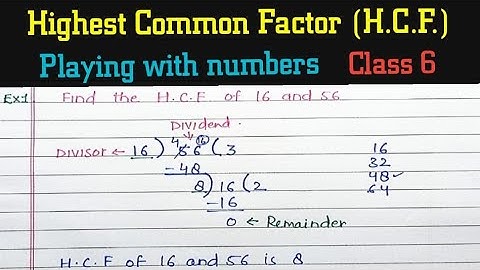 Highest Common Factor (H.C.F.)
Playing with numbers Class 6
Ex1 Find the H.C.F. of 16 and 56
Dividend.
Divisor ← 16 ) 56 ( 3
4 16
-48
8 ) 16 ( 2
-16
0 ← Remainder
16
32
48 ✓
64
H.C.F of 16 and 56 is 8